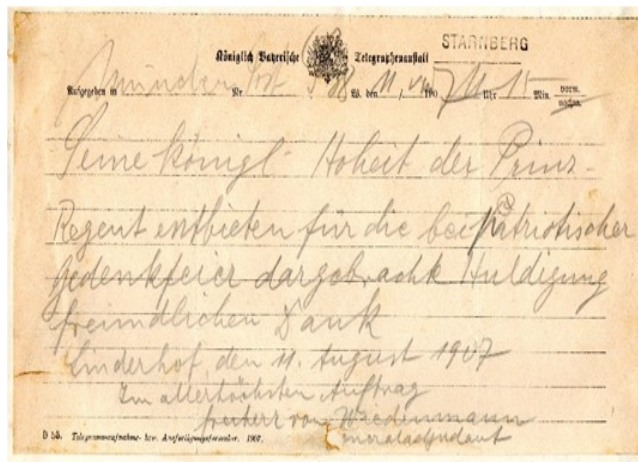 Königlich Bayerische Telegraphenanstalt STARNBERG
Aufgegeben in München Nr W. den 11/VIII 1907 Uhr 15 Min. vorm. nachm.
Seine Königl. Hoheit der Prinz-
Regent entbieten für die bei patriotischer
Gedenkfeier dargebrachte Huldigung
freundlichen Dank
Linderhof, den 11. August 1907
Im allerhöchsten Auftrag
Freiherr von Wiedenmann
Generaladjudant
D 55. Telegrammaufnahme- bzw. Ausfertigungsformular. 1907.